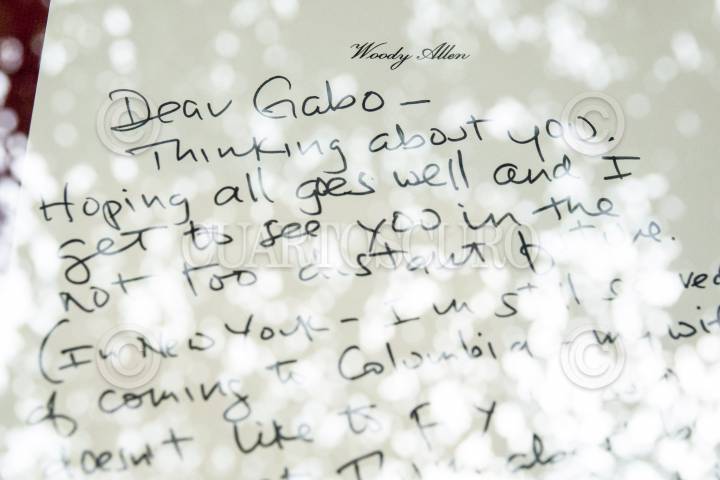 Woody Allen
Dear Gabo –
Thinking about you.
Hoping all goes well and I
get to see you in the
not too distant future.
(In New York – I'm still
of coming to Colombia – my wife
doesn't like to fly
CUARTOSCURO